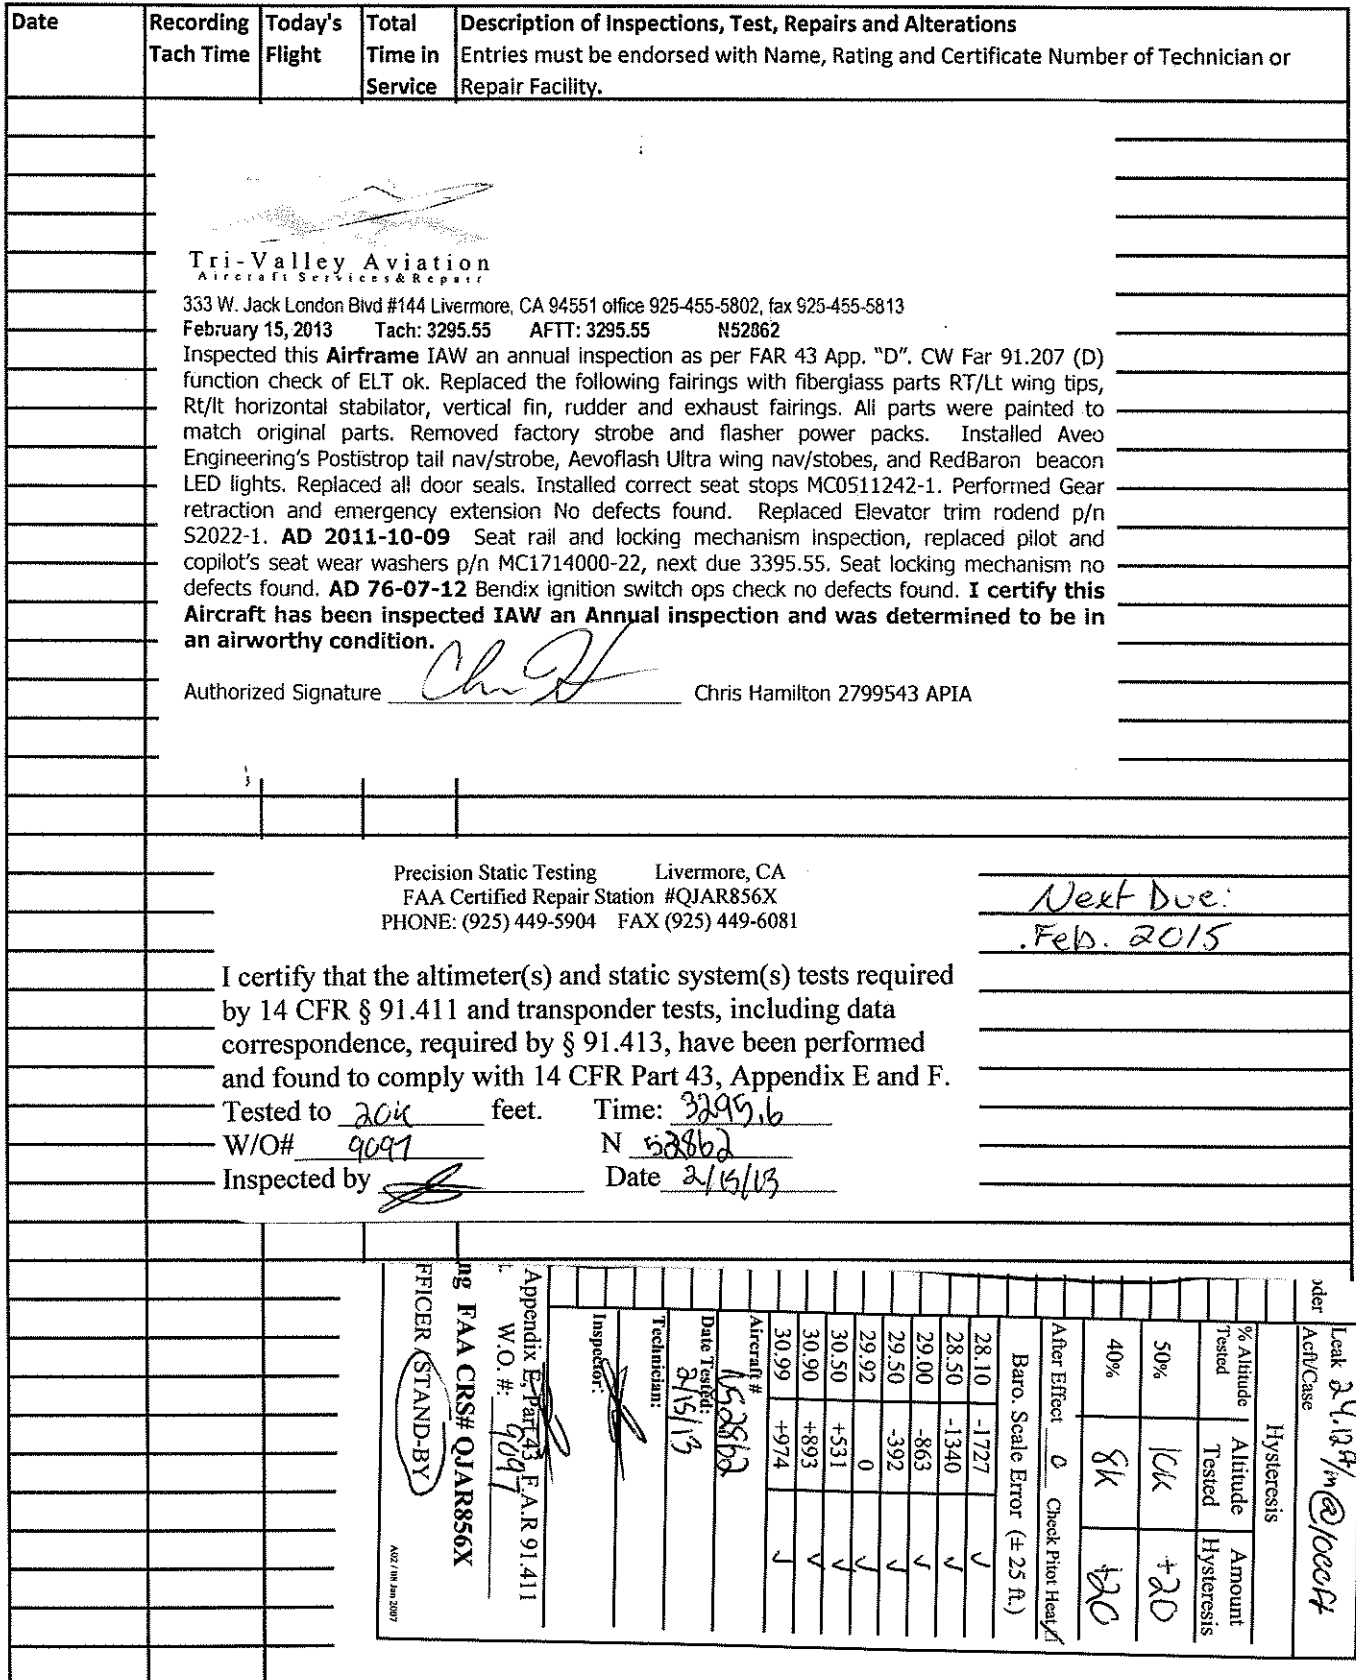 Date Recording Today's Total Description of Inspections, Test, Repairs and Alterations
Tach Time Flight Time in Entries must be endorsed with Name, Rating and Certificate Number of Technician or
Service Repair Facility.
Tri-Valley Aviation
Aircraft Services & Repair
333 W. Jack London Blvd #144 Livermore, CA 94551 office 925-455-5802, fax 925-455-5813
February 15, 2013 Tach: 3295.55 AFTT: 3295.55 N52862
Inspected this Airframe IAW an annual inspection as per FAR 43 App. "D". CW Far 91.207 (D)
function check of ELT ok. Replaced the following fairings with fiberglass parts RT/Lt wing tips,
Rt/lt horizontal stabilator, vertical fin, rudder and exhaust fairings. All parts were painted to
match original parts. Removed factory strobe and flasher power packs. Installed Aveo
Engineering's Postistrop tail nav/strobe, Aevoflash Ultra wing nav/stobes, and RedBaron beacon
LED lights. Replaced all door seals. Installed correct seat stops MC0511242-1. Performed Gear
retraction and emergency extension No defects found. Replaced Elevator trim rodend p/n
S2022-1. AD 2011-10-09 Seat rail and locking mechanism inspection, replaced pilot and
copilot's seat wear washers p/n MC1714000-22, next due 3395.55. Seat locking mechanism no
defects found. AD 76-07-12 Bendix ignition switch ops check no defects found. I certify this
Aircraft has been inspected IAW an Annual inspection and was determined to be in
an airworthy condition.
Authorized Signature Chris Hamilton 2799543 APIA
Precision Static Testing Livermore, CA
FAA Certified Repair Station #QJAR856X
PHONE: (925) 449-5904 FAX (925) 449-6081
Next Due:
Feb. 2015
I certify that the altimeter(s) and static system(s) tests required
by 14 CFR § 91.411 and transponder tests, including data
correspondence, required by § 91.413, have been performed
and found to comply with 14 CFR Part 43, Appendix E and F.
Tested to 20K feet. Time: 3295.6
W/O# 9097 N 52862
Inspected by Date 2/15/13
oder
Leak 24.12ft/m@10ccft
Acft/Case
Hysteresis
% Altitude Tested Altitude Tested Amount Hysteresis
50% 10K +20
40% 8K +20
After Effect 0 Check Pitot Heat
Baro. Scale Error (± 25 ft.)
28.10 -1727 ✓
28.50 -1340 ✓
29.00 -863 ✓
29.50 -392 ✓
29.92 0 ✓
30.50 +531 ✓
30.90 +893 ✓
30.99 +974 ✓
Aircraft # N52862
Date Tested: 2/15/13
Technician:
Inspector:
Appendix E, Part 43 F.A.R 91.411
W.O. #: 9097
ng FAA CRS# QJAR856X
FFICER / STAND-BY
A02 / 08 Jan 2007